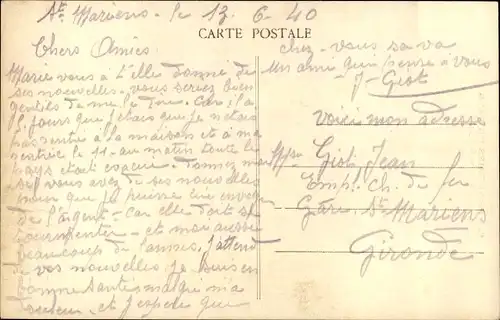 St. Mariens - le 13. 6-40
CARTE POSTALE
Chers Amies.
Marie vous a t'elle donné de
ses nouvelles. vous seriez bien
gentils de me le dire. Car il a
8. jours que j'étais que je n'étais
pas rentré a la maison et a ma
rentrée le 11- au matin toute le
pays était donnez moi
si vous avez de ses nouvelles
pour que je puisse lire envoyer
de l'argent - Car elle doit se
tourmenter - et moi aussi
beaucoup de pannes. J'attend
de vos nouvelles. Je suis en
bonne santé malgré ma
douleur. et j'espère que
chez vous sa va
Un ami qui pense a vous
J. Giot
Voici mon adresse
Mr Giot Jean
Emp. Ch. de fer
Gare St-Mariens
Gironde